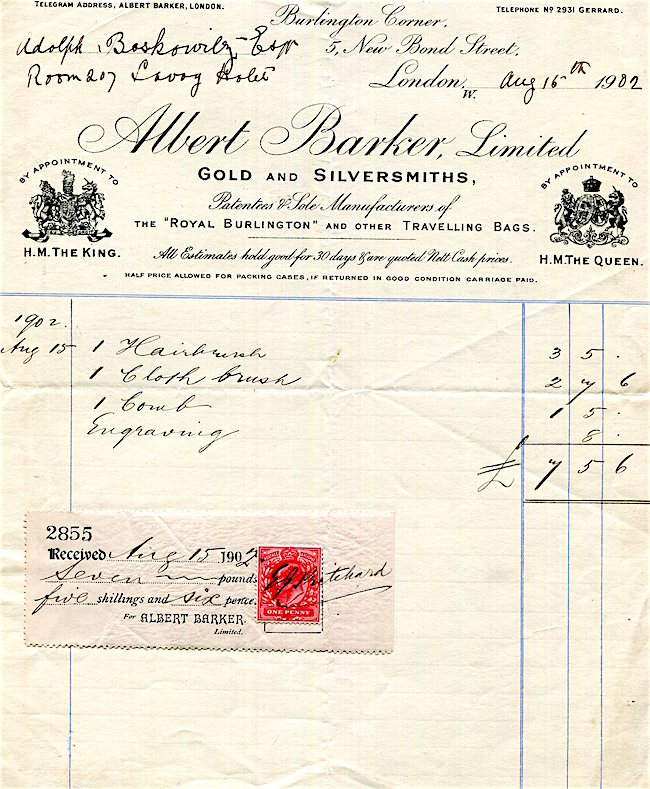 TELEGRAM ADDRESS, ALBERT BARKER, LONDON.
TELEPHONE Nº 2931 GERRARD.
Burlington Corner,
Adolph Boskowitz Esqr
5, New Bond Street,
Room 207 Savoy Hotel
London, W. Aug 15th 1902
Albert Barker, Limited
GOLD AND SILVERSMITHS,
Patentees & Sole Manufacturers of
THE "ROYAL BURLINGTON" AND OTHER TRAVELLING BAGS.
BY APPOINTMENT TO
H.M. THE KING.
BY APPOINTMENT TO
H.M. THE QUEEN.
All Estimates hold good for 30 days & are quoted Nett Cash prices.
HALF PRICE ALLOWED FOR PACKING CASES, IF RETURNED IN GOOD CONDITION CARRIAGE PAID.
1902.
Aug 15 1 Hairbrush 3 5 .
1 Cloth brush 2 7 6
1 Comb 1 5 .
Engraving 8 .
£ 7 5 6
2855
Received Aug 15 1902
Seven pounds
five shillings and six pence.
For ALBERT BARKER,
Limited.
Pritchard
ONE PENNY